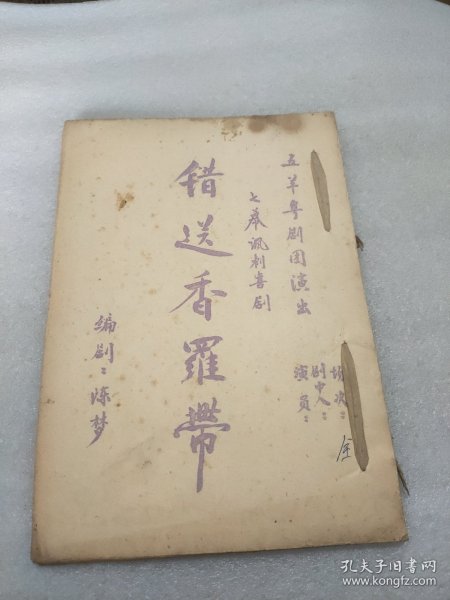 五羊粤剧团演出
七幕諷刺喜剧
错送香羅帶
编剧：陈梦
场次：全
剧中人：
演员：
孔夫子旧书网
www.kongfz.com